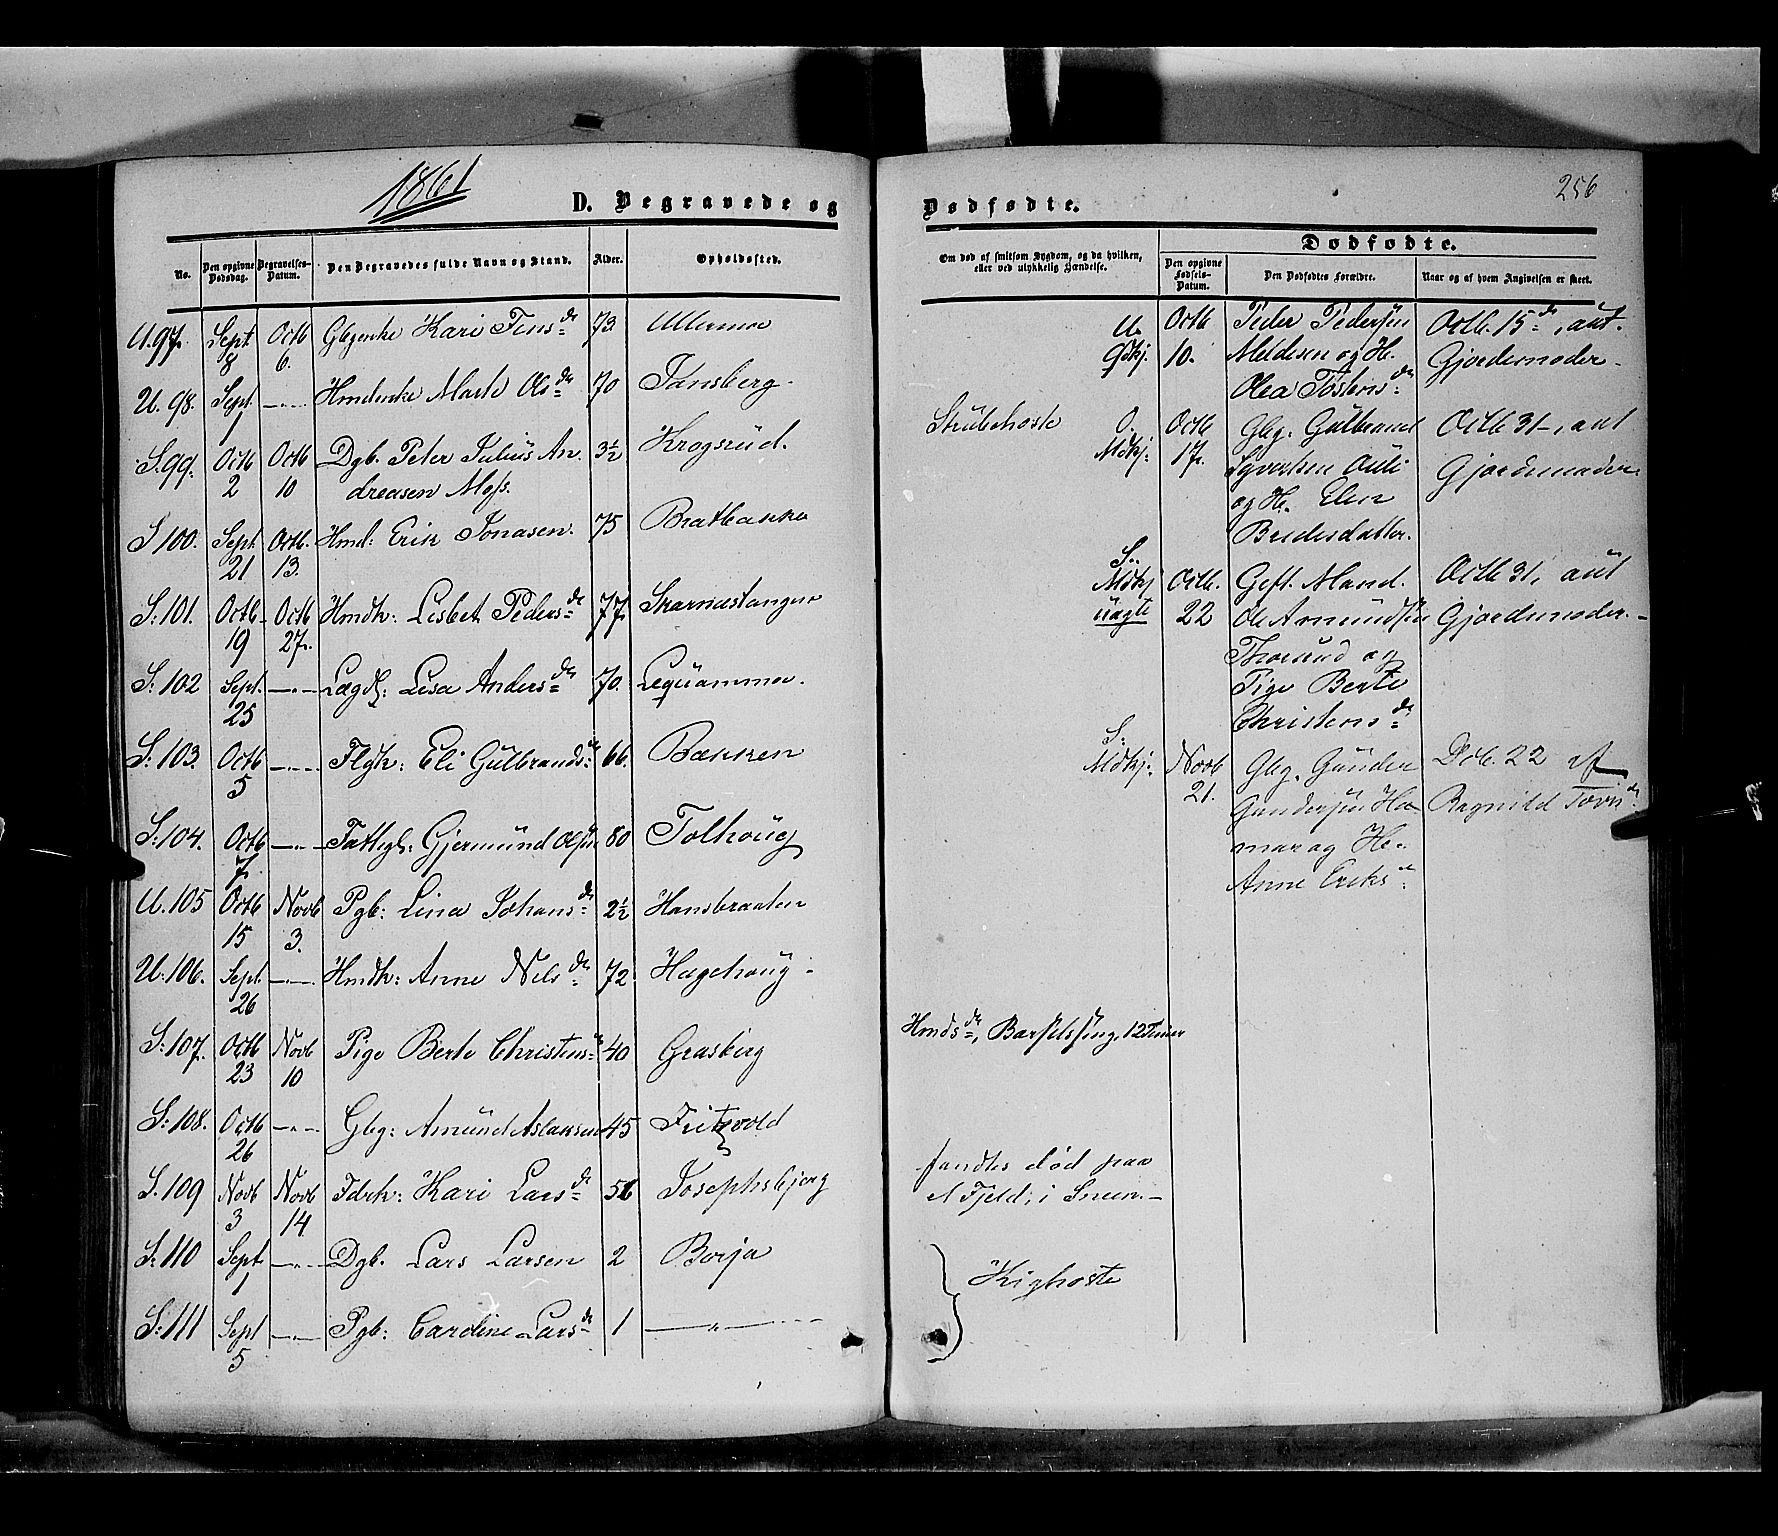 1861
D. Begravede og
No.
Den opgivne Dødsdag.
Begravelses-Datum.
Den Begravedes fulde Navn og Stand.
Alder.
Opholdssted.
U. 97. Sept 8 Octb 6. Kari Tens dr 73 Ullermoe
U. 98. Sept 1 —"— Marte Ols dr 70 Tansberg.
S. 99. Octb 2 Octb 10 Dgb. Peter Julius An- 3½ Krogsrud.
dreasen Moss.
S 100. Sept. 21 Octb. 13. Hmd: Erik Jonasen. 75 Bratbakke
S: 101. Octb 19 Octb 27. Hmdk: Lisbet Peders dr 77.
S: 102 Sept. 25 —"— Lisa Anders dr 70.
S: 103. Octb 5 —"— Eli Gulbrands dr 66. Bakken
S: 104. Octb 7. —"— Gjermund Olsen 80 Tolhoug
U. 105 Octb 15 Novb 3. Pgb: Lina Johans dr 2½ Hansbraaten
U: 106. Sept 26 —"— Hmdk: Anne Nils dr 72. Hagehoug
S: 107. Octb 23 Novb 10 Pige Berte Christens dr 40 Grasberg
S: 108. Octb 26 —"— Gbg: Amund Aslaksen 45 Fritzvold
S. 109 Novb 3 Novb 14 Kari Lars dr 51 Josephsbjerg
S: 110 Sept 1 —"— Dgb. Lars Larsen 2 Borja
S: 111 Sept 5 —"— Pgb: Caroline Lars dr 1 —"—
256
Dødfødte.
Om død af smitsom Sygdom, og da hvilken, eller ved ulykkelig Hændelse.
Dødfødte.
Den opgivne Fødsels-Datum.
Den Dødfødtes Forældre.
Naar og af hvem Angivelsen er skeet.
U. Octb Peder Pedersen Octb. 15 de, aut.
Gdkj. 10. og H. Gjordemoder.
Olea Tostens dr
Strubehoste
Octb Gbg. Gulbrand Octb 31, aut
Mdkj. 17. Syvertsen Gjordemoder
og H. Elen
Bredesdatter.
S.
Mdkj Octb. Gift Mand. Octb 31, aut
uægte 22 Ole Amundsen Gjordemoder.
Thorsrud og
Pige Berte
Christens dr
S:
Mdkj. Novb Gbg. Gunder Dcb. 22 af
21. Gundersen Ha- Ragnild
mar og H.
Anne Eriks dr
Hmds dr, Barselseng, 12 Timer
fandtes død paa
et Fjeld, i Sneen.
Kighoste